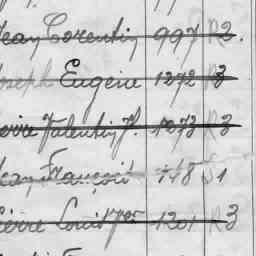 Jean Corentin 997 R3.
Joseph Eugène 1272 R3
Pierre Valentin M. 1073 R3
Jean François 1148 S1
Pierre Louis Yves 1201 R3